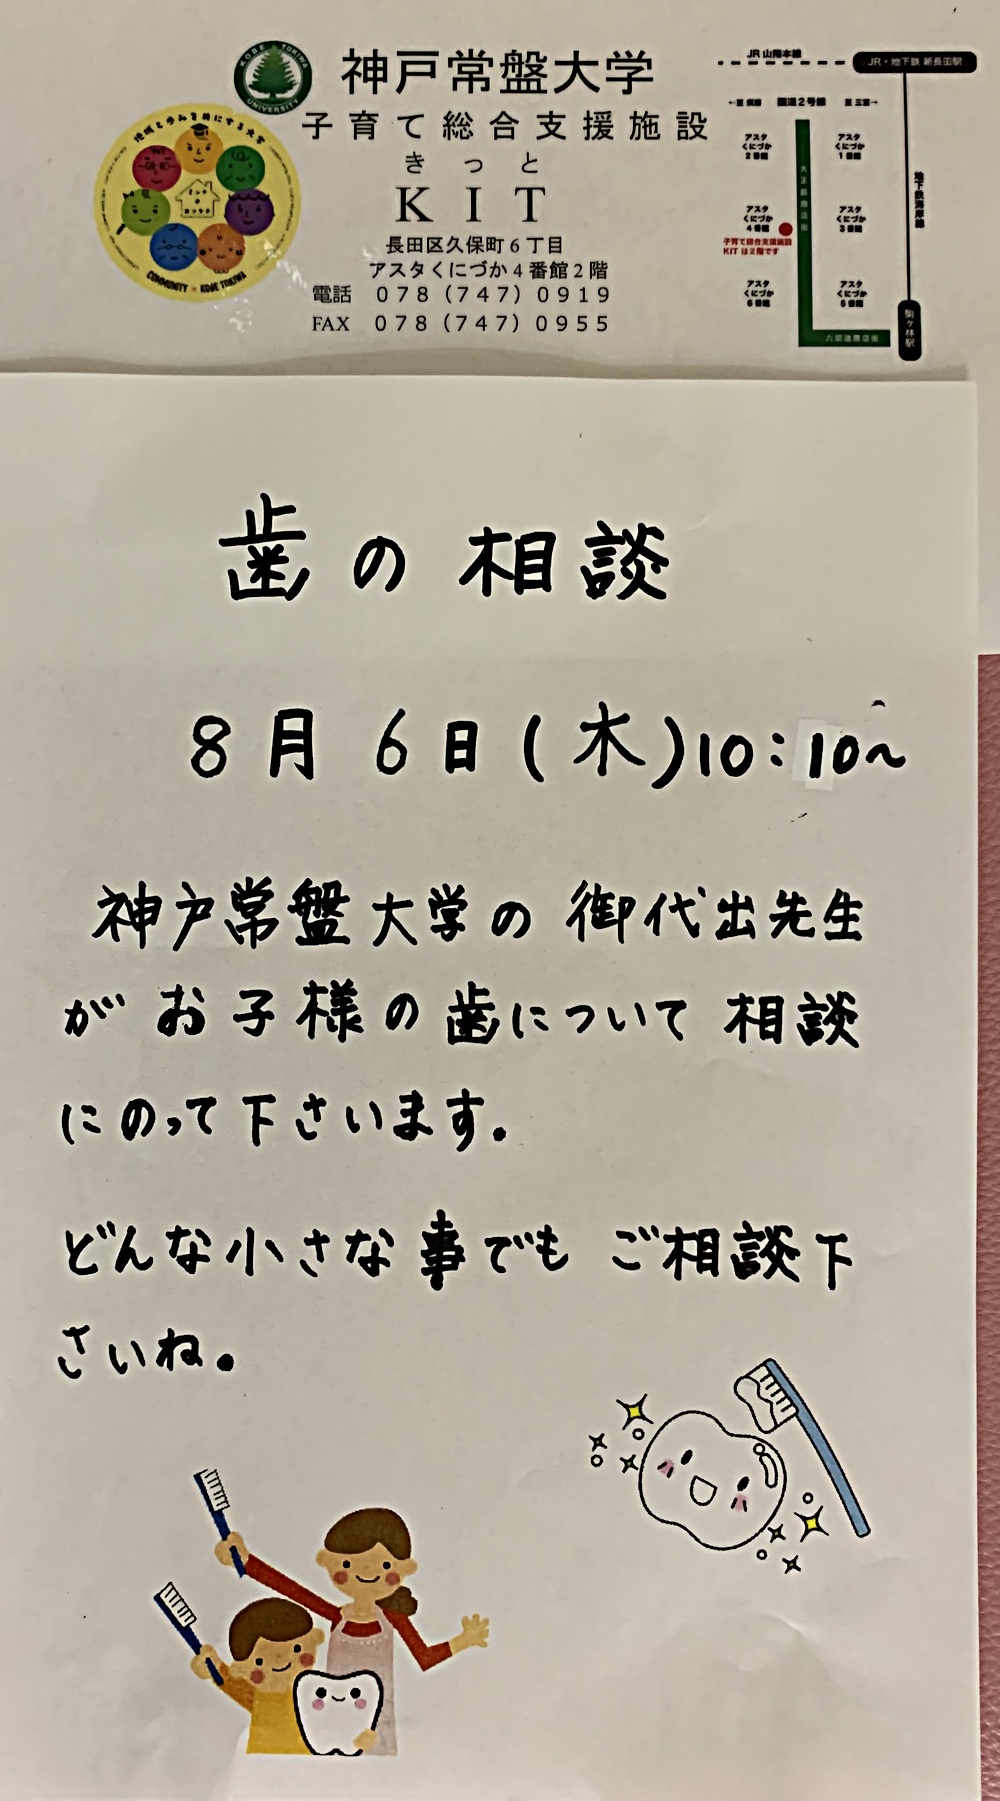 KOBE TOKIWA
UNIVERSITY
神戸常盤大学
子育て総合支援施設
きっと
KIT
長田区久保町6丁目
アスタくにづか4番館2階
電話 078(747)0919
FAX 078(747)0955
地域と歩みを共にする大学
COMMUNITY × KOBE TOKIWA
JR 山陽本線
JR・地下鉄 新長田駅
国道2号線
至 三宮→
アスタ
くにづか
2番館
アスタ
くにづか
1番館
アスタ
くにづか
4番館
アスタ
くにづか
3番館
子育て総合支援施設
KIT は2階です
アスタ
くにづか
6番館
アスタ
くにづか
5番館
大正筋商店街
六間道商店街
地下鉄海岸線
駒ヶ林駅
歯の相談
8月6日(木)10:10~
神戸常盤大学の御代出先生
がお子様の歯について相談
にのって下さいます。
どんな小さな事でもご相談下
さいね。